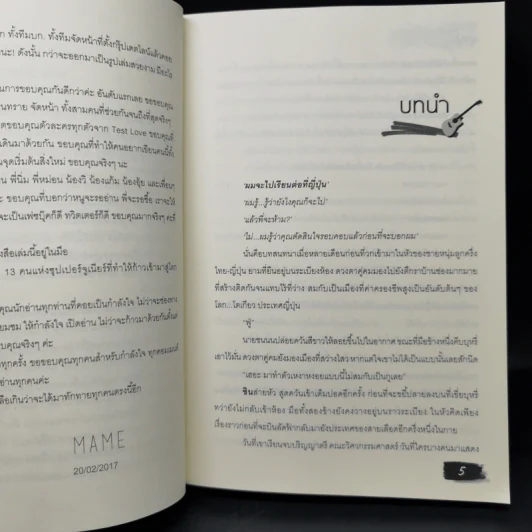 ก ทั้งทีมบก. ทั้งทีมจัดหน้าที่ตั้งกรุ๊ปเดตไลน์แล้วคอย
นะ! ดังนั้น กว่าจะออกมาเป็นรูปเล่มสวยงาม
นการขอบคุณกันดีกว่าค่ะ อันดับแรกเลย ขอขอบคุณ
นทราย จัดหน้า ทั้งสามคนที่ช่วยกันจนถึงที่สุดจริงๆ
ตขอบคุณตัวละครทุกตัวจาก Test Love ขอบคุณที่
เดินมาด้วยกัน ขอบคุณที่ทำให้คนอยากเขียนคนนี้ทั้ง
นจุดเริ่มต้นสิ่งใหม่ ขอบคุณจริงๆ นะ
พี่นิ่ม พี่หม่อน น้องวิ น้องแก้ม น้องจุ้ย และเพื่อนๆ
ะ ขอบคุณที่บอกว่าหนูจะรออ่าน พี่จะรอซื้อ เราจะใช้
จะเป็นเฟซบุ๊กก็ดี ทวิตเตอร์ก็ดี ขอบคุณมากจริงๆ ค่ะที่
สือเล่มนี้อยู่ในมือ
13 คนแห่งซุปเปอร์จูเนียร์ที่ทำให้ก้าวเข้ามาสู่โลก
คุณนักอ่านทุกท่านที่คอยเป็นกำลังใจ ไม่ว่าจะช่องทาง
ยมชม ให้กำลังใจ เปิดอ่าน ไม่ว่าจะก้าวมาด้วยกันตั้งแต่
จริงๆ ค่ะ
ทุกครั้ง ขอขอบคุณทุกคนสำหรับกำลังใจ ทุกคอมเมนต์
อ่านทุกคนค่ะ
ลือเกินว่าจะได้มาทักทายทุกคนตรงนี้อีก
MAME
20/02/2017
บทนำ
'ผมจะไปเรียนต่อที่ญี่ปุ่น'
'ผมรู้...รู้ว่ายังไงคุณก็จะไป'
'แล้วพี่จะห้าม?'
'ไม่...ผมรู้ว่าคุณตัดสินใจรอบคอบแล้วก่อนที่จะบอกผม'
นั่นคือบทสนทนาเมื่อหลายเดือนก่อนที่วกเข้ามาในหัวของชายหนุ่มลูกครึ่ง
ไทย-ญี่ปุ่น ยามที่ยืนอยู่บนระเบียงห้อง ดวงตาคู่คมมองไปยังตึกราบ้านช่องมากมาย
ที่สร้างติดกันจนแทบไร้ที่ว่าง สมกับเป็นเมืองที่ค่าครองชีพสูงเป็นอันดับต้นๆ ของ
โลก...โตเกียว ประเทศญี่ปุ่น
"ฟู่"
นายชนนปล่อยควันสีขาวให้ลอยขึ้นไปในอากาศ ขณะที่มือข้างหนึ่งคีบบุหรี่
เอาไว้มั่น ดวงตาคู่คมยังมองเมืองที่สว่างไสว หากแต่ใจเขาไม่ได้เป็นแบบนั้นเลยสักนิด
"เฮอะ มาทำตัวเหงาหงอยแบบนี้ไม่สมกับเป็นกูเลย"
ชินส่ายหัว สูดควันเข้าเต็มปอดอีกครั้ง ก่อนที่จะขยี้ปลายลงบนที่เขี่ยบุหรี่
ทว่ายังไม่กลับเข้าห้อง มือทั้งสองข้างยังคงวางอยู่บนราวระเบียง ในหัวคิดเพียง
เรื่องราวก่อนที่จะบินลัดฟ้ากลับมายังประเทศของสายเลือดอีกครึ่งหนึ่งในกาย
วันที่เขาเรียนจบปริญญาตรี คณะวิศวกรรมศาสตร์ วันที่ใครบางคนมาแสดง
5